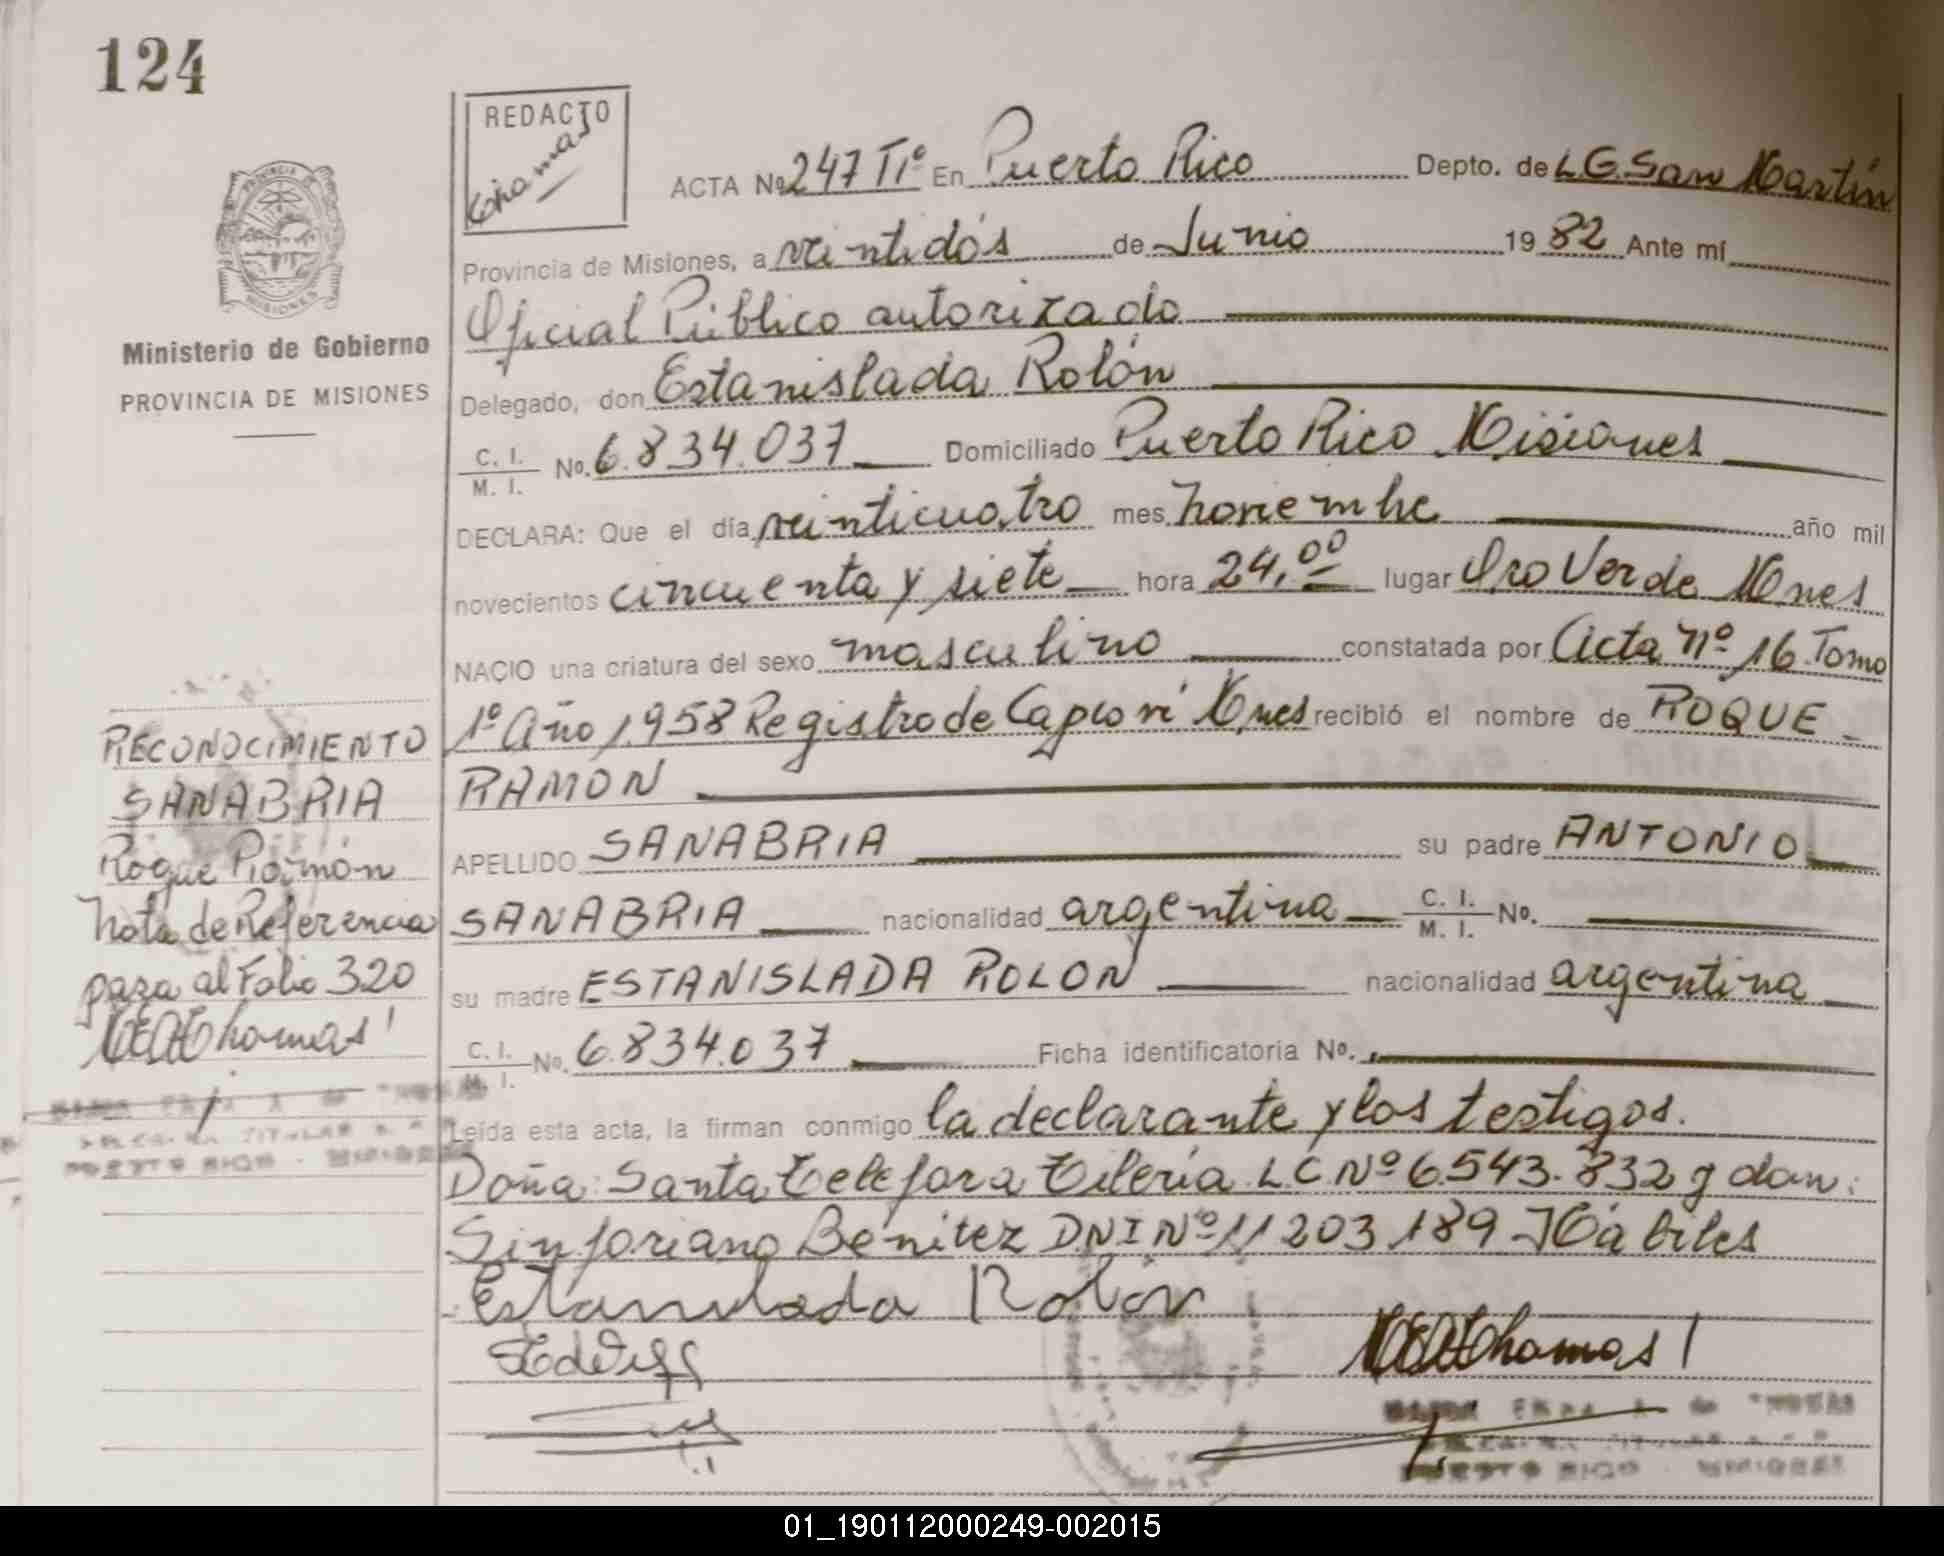 124
REDACTO
Thomas
PROVINCIA DE
MISIONES
Ministerio de Gobierno
PROVINCIA DE MISIONES
ACTA No 247 Tº En Puerto Rico Depto. de L.G. San Martín
Provincia de Misiones, a veintidós de Junio 1982 Ante mí
Oficial Público autorizado
Delegado, don Estanislada Rolón
C. I. / M. I. No. 6.834.037 Domiciliado Puerto Rico Misiones
DECLARA: Que el día veinticuatro mes noviembre año mil
novecientos cincuenta y siete hora 24,00 lugar Oro Verde Mnes
NACIO una criatura del sexo masculino constatada por Acta Nº 16 Tomo
1º Año 1958 Registro de Capioví Mnes recibió el nombre de ROQUE
RAMON
APELLIDO SANABRIA su padre ANTONIO
SANABRIA nacionalidad argentina C. I. / M. I. No.
su madre ESTANISLADA ROLON nacionalidad argentina
C. I. / M. I. No. 6.834.037 Ficha identificatoria No.
Leída esta acta, la firman conmigo la declarante y los testigos.
Doña: Santa Telefora Tilería LC Nº 6.543.832 y don:
Sinforiano Benítez DNI Nº 11 203 189 Hábiles
Estanislada Rolón
Thomas
RECONOCIMIENTO
SANABRIA
Roque Ramón
Nota de Referencia
pasa al Folio 320
Thomas
PUERTO RICO - MISIONES
PUERTO RICO - MISIONES
01_190112000249-002015